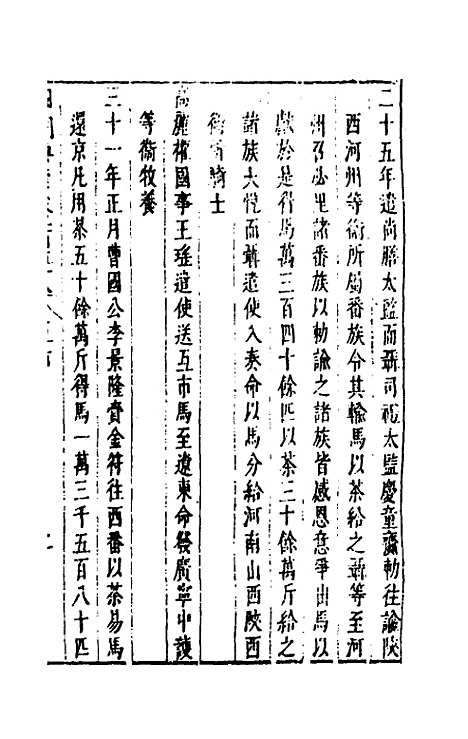 二十五年遣尚膳太監而聶司禮太監慶童齎勅往諭陝
西河州等衛所屬番族令其輸馬以茶給之聶等至河
州召必里諸番族以勅諭之諸族皆感恩意爭出馬以
獻於是得馬萬三百四十餘匹以茶三十餘萬斤給之
諸族大悅而聶遣使入奏命以馬分給河南山西陝西
衛所騎士
高麗權國事王瑤遣使送互市馬至遼東命發廣寧中護
等衛牧養
三十一年正月曹國公李景隆賫金符往西番以茶易馬
還京凡用茶五十餘萬斤得馬一萬三千五百八十四